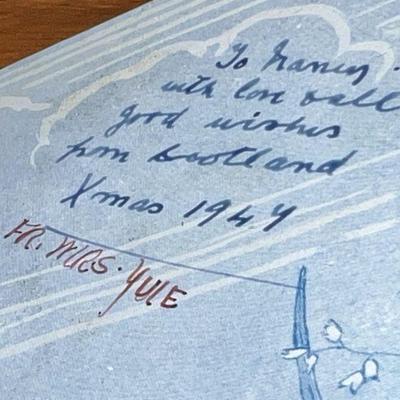 To Nancy
with love & all
good wishes
from Scotland
Xmas 1947
FR. MRS. YULE